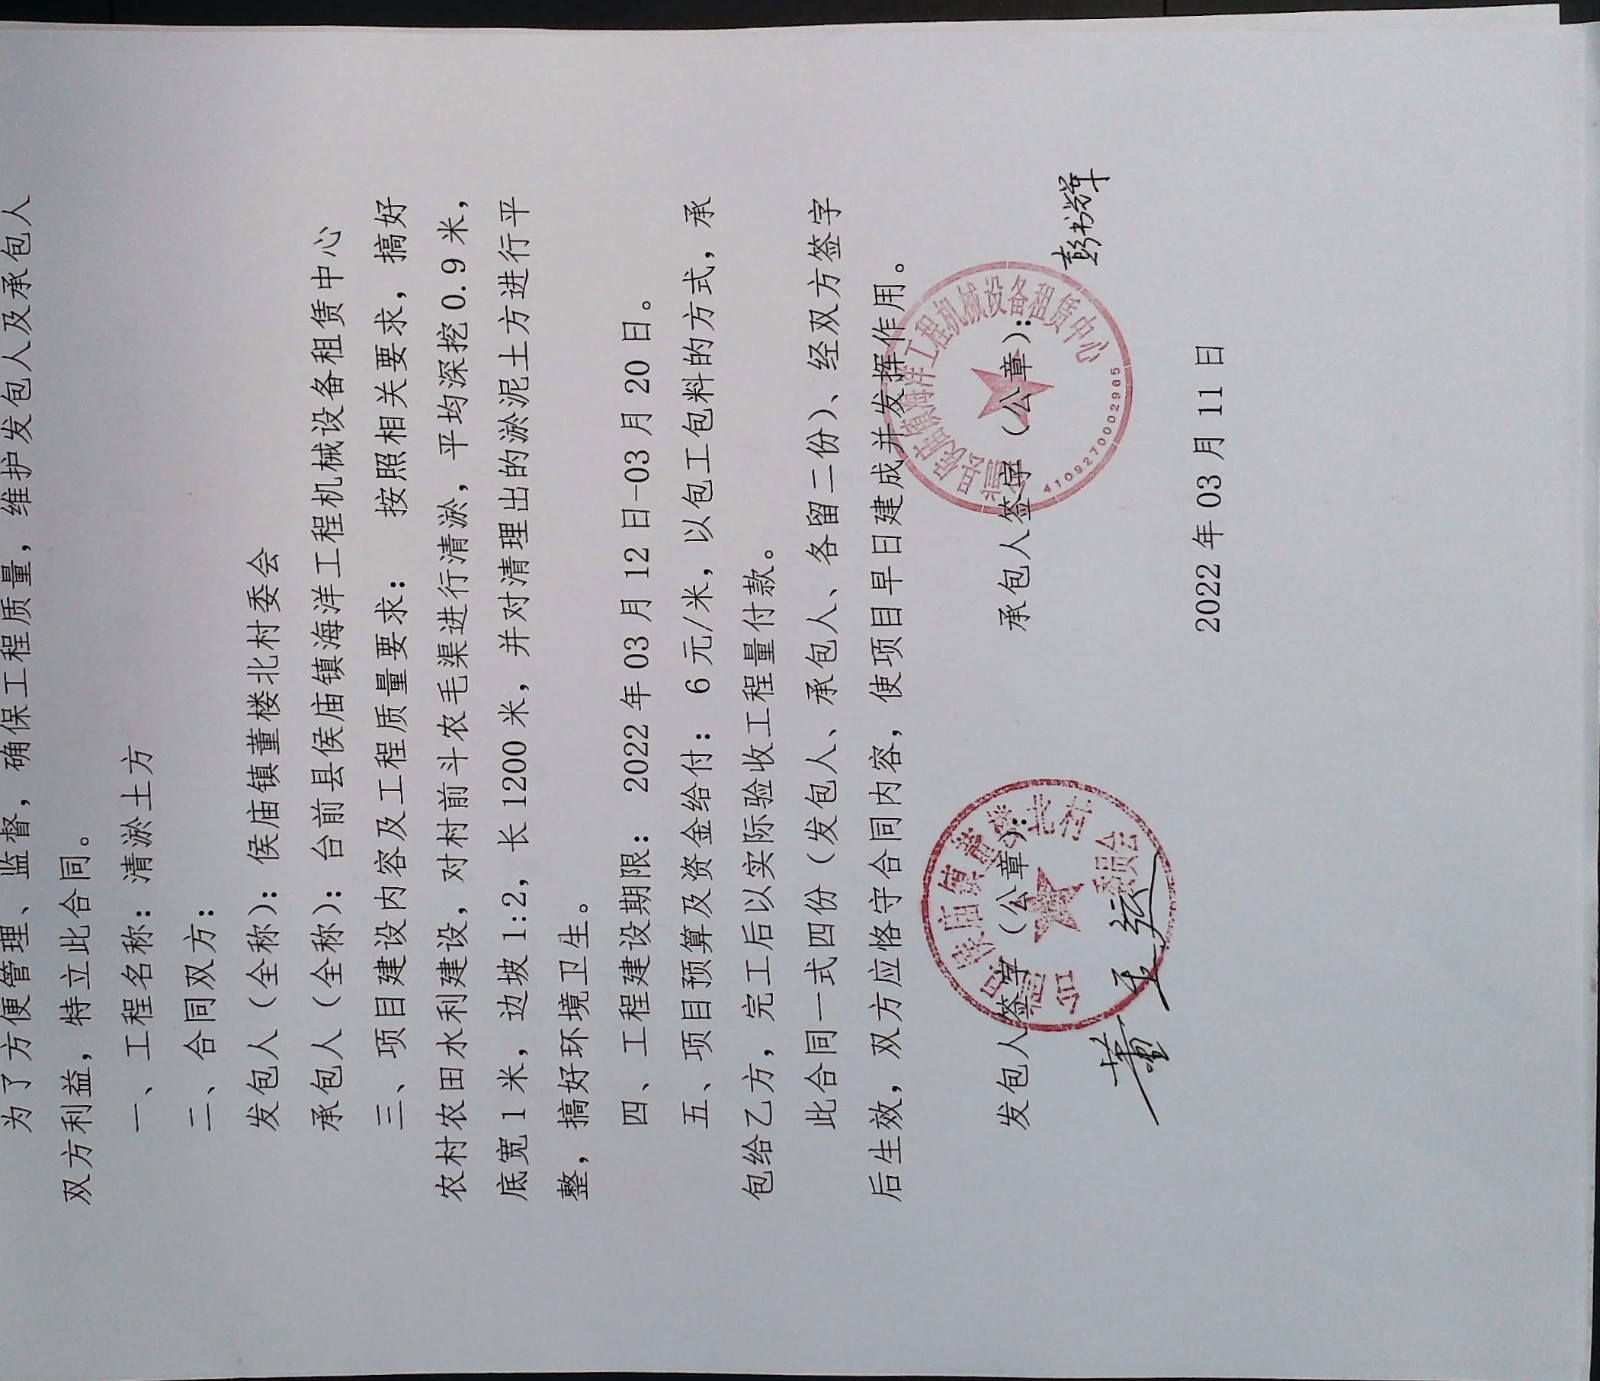 为了方便管理、监督，确保工程质量，维护发包人及承包人
双方利益，特立此合同。
一、工程名称：清淤土方
二、合同双方：
发包人（全称）：侯庙镇董楼北村委会
承包人（全称）：台前县侯庙镇海洋工程机械设备租赁中心
三、项目建设内容及工程质量要求： 按照相关要求，搞好
农村农田水利建设，对村前斗农毛渠进行清淤，平均深挖 0.9 米，
底宽 1 米，边坡 1:2，长 1200 米，并对清理出的淤泥土方进行平
整，搞好环境卫生。
四、工程建设期限： 2022 年 03 月 12 日-03 月 20 日。
五、项目预算及资金给付：6 元/米，以包工包料的方式，承
包给乙方，完工后以实际验收工程量付款。
此合同一式四份（发包人、承包人、各留二份）、经双方签字
后生效，双方应恪守合同内容，使项目早日建成并发挥作用。
发包人签字（公章）： 承包人签字（公章）：
侯庙镇董楼北村
委员会
侯庙镇海洋工程机械设备租赁中心
4109270002985
彭书辉
2022 年 03 月 11 日